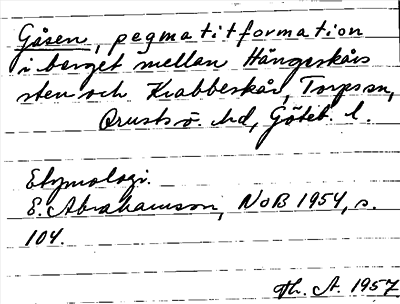 Gåsen, pegmatitformation
i berget mellan Hängeskärs
sten och Krabbeskär, Torps sn,
Orusts ö. hd, Göteb. l.
Etymologi.
E. Abrahamson, NoB 1954, s.
104.
Th. A. 1957